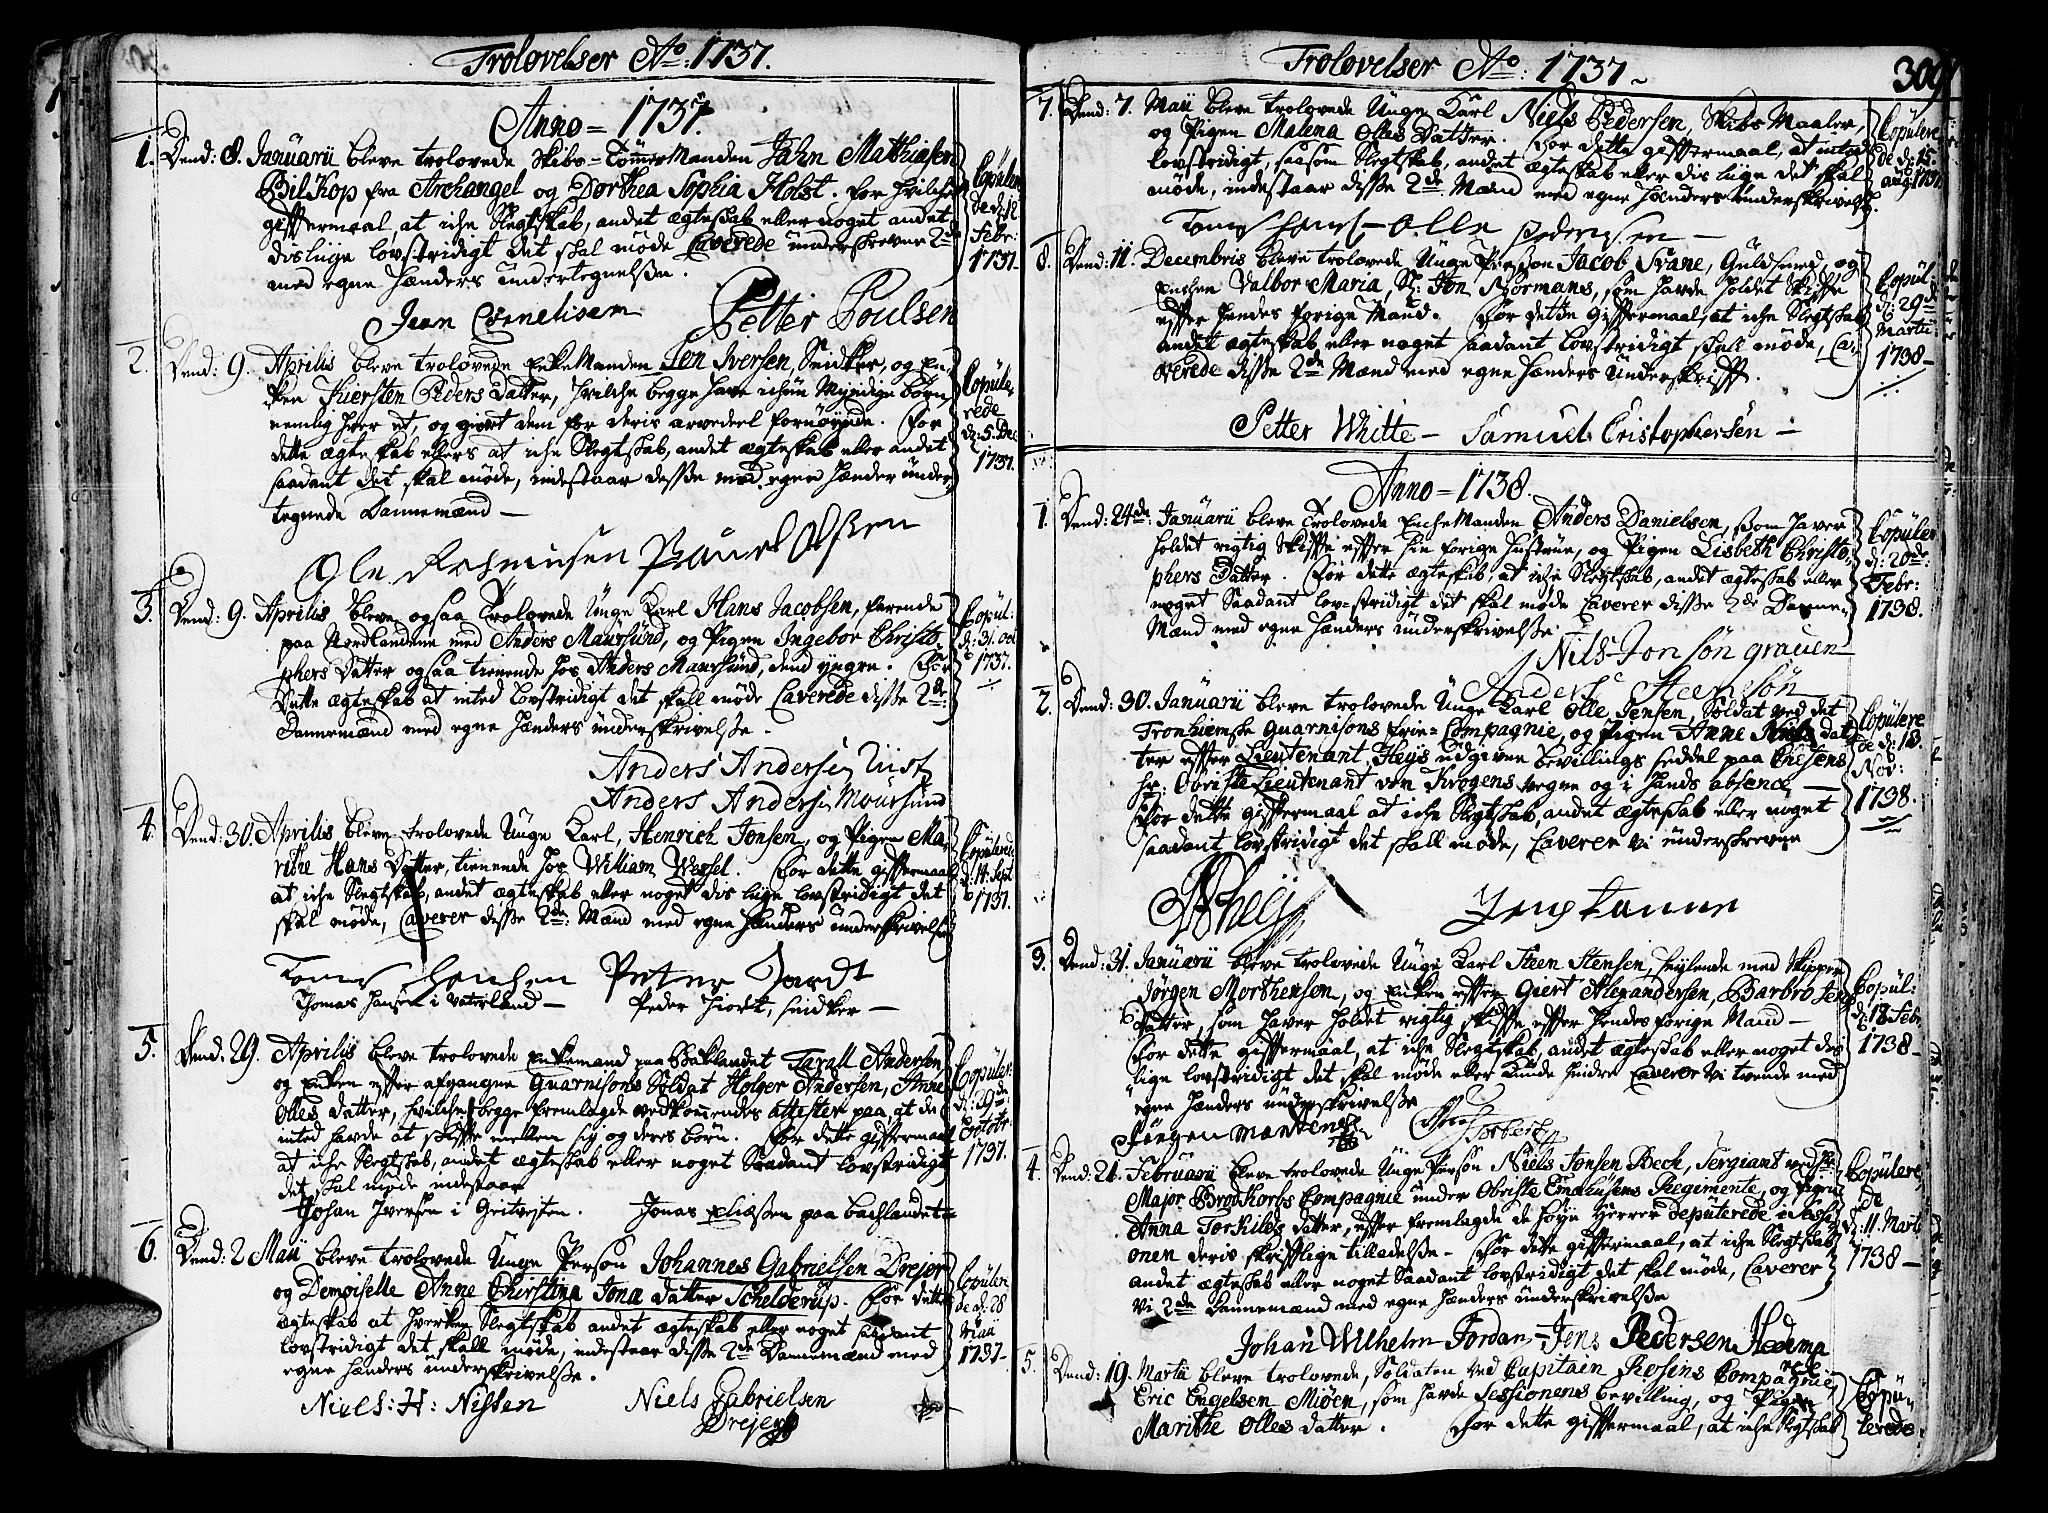 Trolovelser Ao: 1737.
Anno = 1737.
1. Dend: 8. Januarii bleve trolovede Skibs-Tømmermanden Jahn Mathiasen
Bilskop fra Archangel og Dorthea Sophia Holst. for hvilche
giftermaal, at iche Slegtskab, andet ægteskab eller noget andet
dislige lovstridigt det skal møde Caverede underskrevne 2de
med egne hænders undertegnelße.
Copulerede d: 12 Febr: 1737
Jean Cornelisen Petter Poulsen
2. Dend: 9. Aprilis bleve trolovede EnkeManden Jen Iversen, Snidker, og En-
ken Kiersten Peders Datter, hvilche begge have umyndige børn
nemlig hver et, og giort dem for deris arvedeel fornøyede. For
dette ægteskab ellers at iche Slegtskab, andet ægteskab eller andet
saadant det skal møde, indestaar deße med egne hænder under-
tegnede Dannemænd
Copulerede d: 5. Dec 1737.
Ole Rasmusen Poul Olßen
3. Dend: 9. Aprilis bleve ogsaa Trolovede Unge Karl Hans Jacobsen, farende
paa Nordlandene med Anders Maursund, og Pigen Ingebor Christo-
phers Datter ogsaa tienende hos Anders Maursund, dend yngre. For
Dette ægteskab at inted lovstridigt det skall møde Caverede diße 2de:
Dannemænd med egne hænders underskrivelße.
Copul: d: 31. oct 1737.
Anders Andersen
Anders Andersen Moursund
4. Dend: 30. Aprilis bleve trolovede Unge Karl, Henrich Jonsen, og Pigen Ma-
rithe Hans Datter, tienende hos William Wessel. For dette giftermaal
at iche Slegtskab, andet ægteskab eller noget dis lige lovstridigt det
skal møde, Caverer diße 2de: Mænd med egne hænders underskrivelse
Copulered d: 14. Sept 1737.
Tomas Hansen Petter Jordt
Thomas Hansen i Vaterland — Peder Hiordt, snidker —
5. Dend: 29. Aprilis bleve trolovede Enkemand paa Baklandet Taral Andersen
og Enken efter afgangne Guarnisons Soldat Holger Andersen, Anne
Olles Datter, hvilche begge fremlagde vedkommendes attester paa, at de
inted havde at skifte mellem sig og deres børn. For dette giftermaal
at iche Slegtskab, andet ægteskab eller noget Saadant lovstridigt
det skal møde indestaar
Copuler: d: 29de: Octobr 1737.
Johan Iversen i Gritvesten. Jonas Eliæßen paa bachlandet
6. Dend: 2 Maii bleve trolovede Unge Person Johannes Gabrielsen Drejer
og Demoiselle Anne Christina Jona datter Schelderup. For dette
ægteskab at hverken Slegtskab andet ægteskab eller noget saadant
lovstridigt det skall møde, indestaar diße 2de Dannemænd med
egne hænders underskrivelße.
Copulerede d: 28 Maii 1737
Niels: H: Nissen Niels Gabrielsen
Drejer
Trolovelser Ao: 1737
309
7. Dend: 7. Maii bleve trolovede Unge Karl Niels Pedersen, Skibs Maaler,
og Pigen Malena Olles Datter. For dette giftermaal, at inted
lovstridigt, saasom Slegtskab, andet ægteskab eller dis lige det skal
møde, indestaar diße 2de Mænd med egne hænders underskrivelße.
Copulerede d: 15. aug: 1737
Tomas Hans— Olle Pedersen
8. Dend: 11. Decembris bleve trolovede Unge Person Jacob Svane, Guldsmed, og
Enchen Valbor Maria, Sl: Jon Normans, som havde holdet Skifte
efter hendes forige Mand. For dette Giftermaal, at iche Slegtskab
andet ægteskab eller noget saadant lovstridigt skall møde, Ca-
verede diße 2de Mænd med egne hænders Underskrifft.
Copul: d: 29de Martii 1738
Petter Whitte — Samuel Cristophersen —
Anno = 1738.
1. Dend: 24de: Januarii bleve Trolovede EncheManden Anders Danielsen, som haver
holdet rigtig skifte efter sin forige hustrue, og Pigen Lisbeth Christo-
phers Datter. For dette ægteskab, at iche Slegtskab, andet ægteskab eller
noget Saadant lov-stridigt det skal møde Caverer diße 2de Danne-
Mænd med egne hænders underskrivelße
Copuler d: 20de: Febr: 1738.
Nils Jonsøn grauen
Anders Steensøn
2. Dend: 30. Januarii bleve trolovede Unge Karl Olle Jensen, Soldat ved det
Tronhiemske Guarnisons frie-Compagnie, og Pigen Anne Niels dat-
ter efter Lieutenant Heys udgivne bevillings seddel paa Chefens
hr: Obriste Lieutenant von Krogens vegne og i hands absence
For dette giftermaal at iche Slegtskab, andet ægteskab eller noget
saadant lovstridigt det skall møde, Caverer vi underskrevne
Copulerede d: 18. Nov: 1738.
Jens Tanne
3. Dend: 31. Januarii bleve trolovede Unge Karl Steen Stensen, seylende med Skipper
Jørgen Morthensen, og Enken efter Giert Alexandersen, Barbro Jens
Datter, som haver holdet rigtig skifte efter hendes forige Mand —
For dette giftermaal, at iche Slegtskab, andet ægteskab eller noget des
lige lovstridigt det skal møde eller kunde hindre Caverer vi tvende med
egne hænders underskrivelße
Copul: d: 18 Febr 1738
Jørgen Mortensen
4. Dend: 26. Februarii bleve trolovede Unge Person Niels Jonsen Bech, Sergiant ved hr:
Major Brodkorbs Compagnie under Obriste Emahusens Regimente, og Pigen
Anna Torkilds datter, efter fremlagde de høye Herrer deputerede i Sessi-
onen deris skriftlige tilladelse. For dette giftermaal, at iche Slegtskab
andet ægteskab eller noget Saadant lovstridigt det skal møde, Caverer
Vi 2de Dannemænd med egne hænders underskrivelße
Copulerede d: 11. Marti 1738
Johan Wilhelm Jordan — Jens Pedersen Hedemp
5. Dend: 19. Martii bleve trolovede, Soldaten ved Capitain Rosins Compagnie
Eric Engelsen Miøen, som havde Sessionens bevilling, og Pigen
Marithe Olles datter. For dette giftermaal, at iche Slegtskab
Copulerede